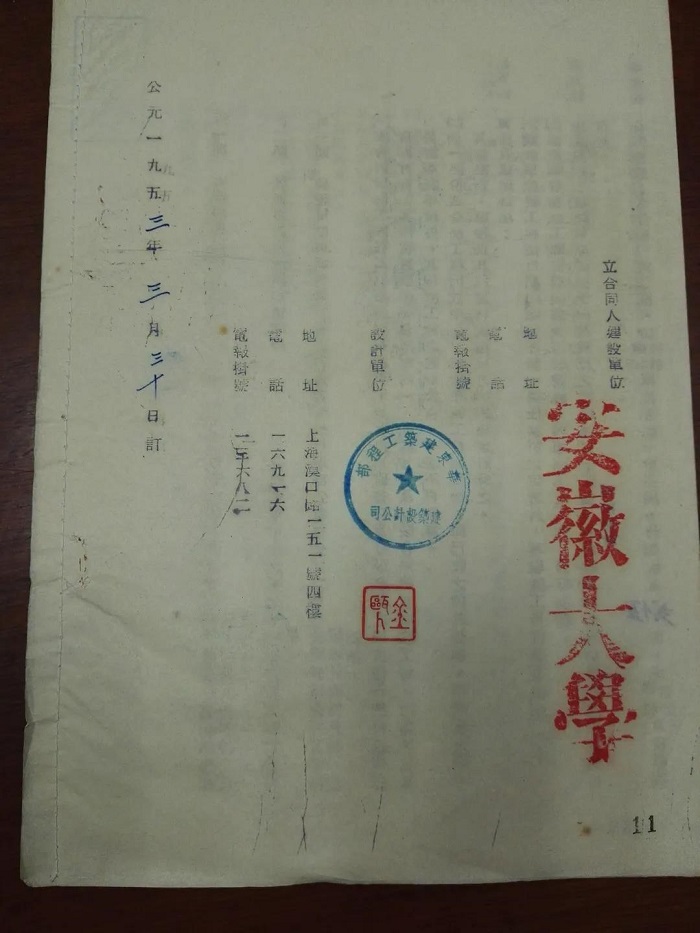 立合同人建設單位
安徽大學
地址
電話
電報掛號
設計單位
華東建築工程部
建築設計公司
地址 上海漢口路一五一號四樓
電話 一六九一六
電報掛號
公元一九五三年三月三十日訂
11